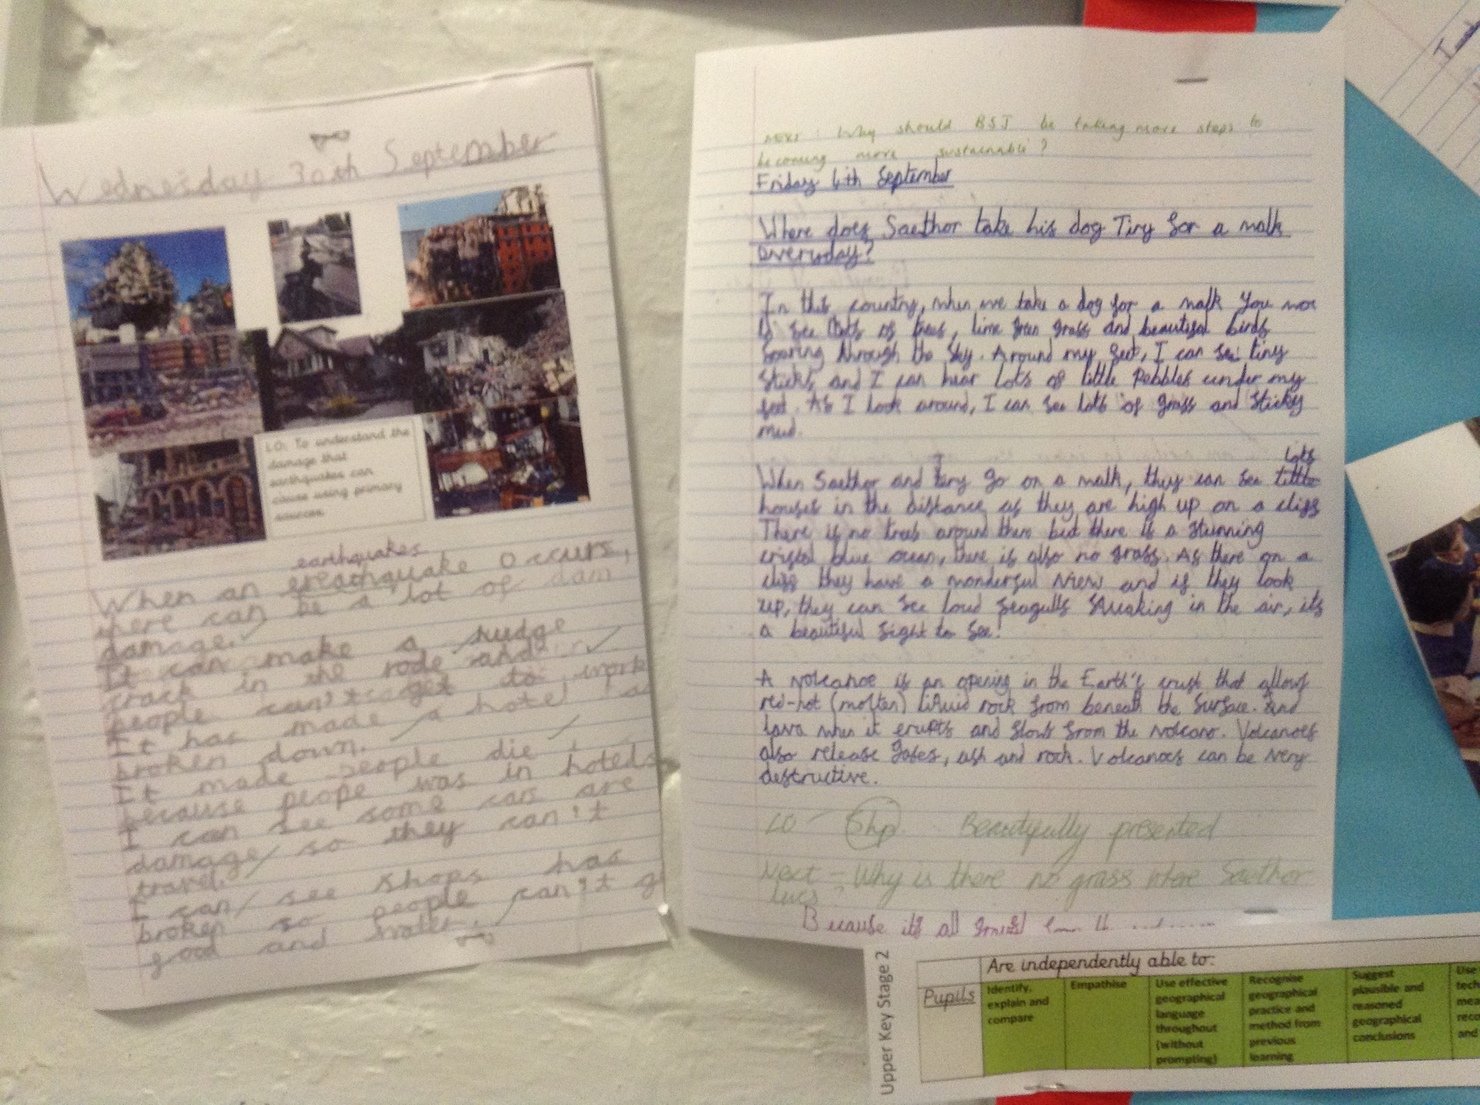 Wednesday 30th September
LO: To understand the
damage that
earthquakes can
cause using primary
sources.
earthquakes
When an ereathquake occurs,
there can be a lot of dam
damage.
It can make a
crack in the rode and
people can't get to work
It has made a hotel
broken down.
It made people die
because peope was in hoteds
I can see some cars are
damage so they can't
travel.
I can see shops has
broken so people can't g
good and water.
NEXT: Why should BSJ be taking more steps to
becoming more sustainable?
Friday 6th September
Where does Saethor take his dog Tiny for a walk
everyday?
In this country, when we take a dog for a walk you
to see lots of trees, lime green grass and beautiful birds
soaring through the sky. Around my feet, I can see tiny
sticks and I can hear lots of little pebbles under my
feet. As I look around, I can see lots of grass and sticky
mud.
lots
When Saethor and tiny go on a walk, they can see little
houses in the distance as they are high up on a cliff
There is no trees around there but there is a stunning
cristal blue ocean, there is also no grass. As there on a
cliff they have a wonderful view and if they look
up, they can see loud seagulls squeaking in the air, its
a beautiful sight to see!
A volcanoe is an opening in the Earth's crust that allows
red-hot (molten) liquid rock from beneath the surface. And
lava when it erupts and flows from the volcano. Volcanoes
also release gases, ash and rock. Volcanoes can be very
destructive.
LO - Beautifully presented
Next - Why is there no grass where Saethor
lives?
Because it's all
Upper Key Stage 2
Are independently able to:
Pupils
Identify,
explain and
compare
Empathise
Use effective
geographical
language
throughout
(without
prompting)
Recognise
geographical
practice and
method from
previous
learning
Suggest
plausible and
reasoned
geographical
conclusions
Use
tech
mea
reco
and